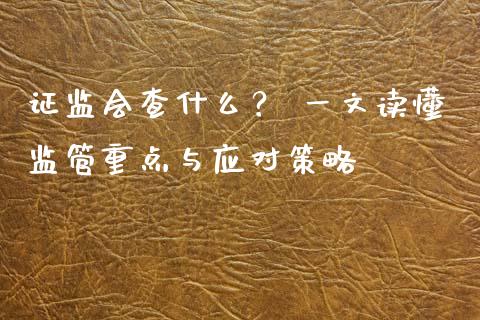 证监会查什么？ 一文读懂
监管重点与应对策略